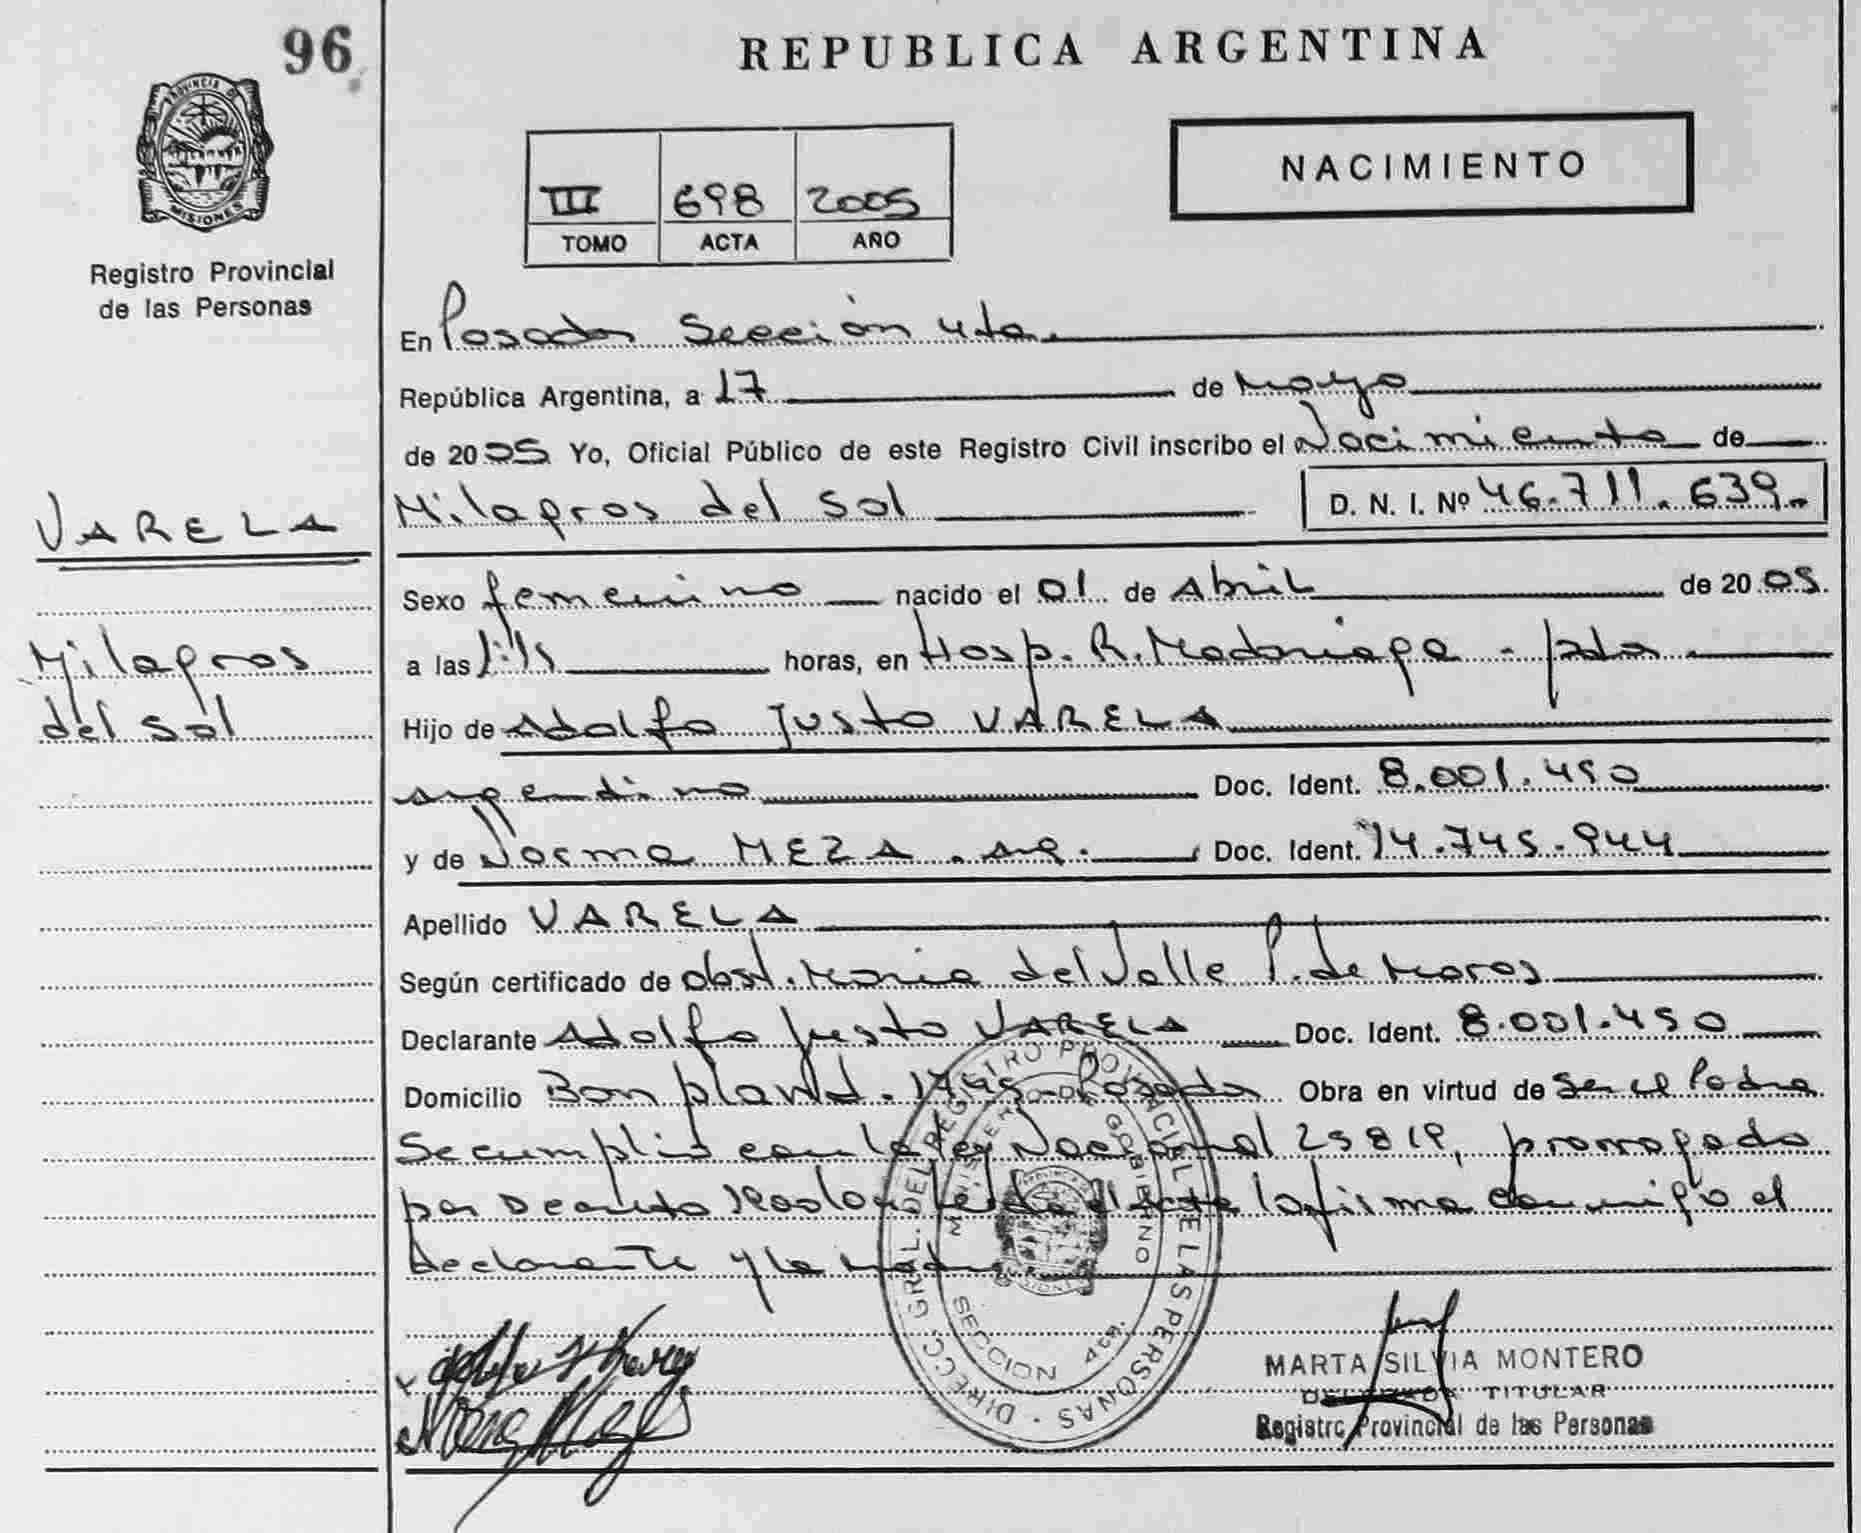 96
REPUBLICA ARGENTINA
PROVINCIA DE
MISIONES
Registro Provincial
de las Personas
NACIMIENTO
III 698 2005
TOMO ACTA AÑO
En Posadas Sección 4ta
República Argentina, a 17 de Mayo
de 2005 Yo, Oficial Público de este Registro Civil inscribo el Nacimiento de
Milagros del Sol D. N. I. Nº 46.711.639.-
VARELA
Milagros
del Sol
Sexo femenino nacido el 01 de Abril de 2005.
a las horas, en Hosp. R. Madariaga - pdas
Hijo de Adolfo Justo VARELA
argentino Doc. Ident. 8.001.450
y de Norma MEZA. arg. Doc. Ident. 14.745.944
Apellido VARELA
Según certificado de obst. Maria del Valle P. de Maros
Declarante Adolfo Justo VARELA Doc. Ident. 8.001.450
Domicilio Bonpland. Posadas Obra en virtud de ser el Padre
Se cumplió con la ley Nacional 25819, prorrogada
por Decreto Leída el acta la firma conmigo el
declarante y la madre
DIRECC. GRAL. DEL REGISTRO PROVINCIAL DE LAS PERSONAS
MINISTERIO DE GOBIERNO
SECCION 4ta.
MARTA SILVIA MONTERO
DELEGADA TITULAR
Registro Provincial de las Personas